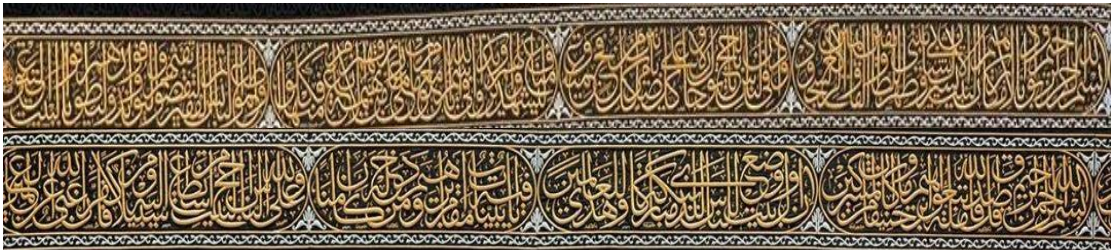 بسم الله الرحمن الرحيم وإذ بوأنا لإبراهيم مكان البيت أن لا تشرك بي شيئا وطهر بيتي للطائفين والقائمين والركع السجود وأذن في الناس بالحج يأتوك رجالا وعلى كل ضامر يأتين من كل فج عميق ليشهدوا منافع لهم ويذكروا اسم الله في أيام معلومات على ما رزقهم من بهيمة الأنعام فكلوا منها وأطعموا البائس الفقير ثم ليقضوا تفثهم وليوفوا نذورهم وليطوفوا بالبيت العتيق
بسم الله الرحمن الرحيم قل صدق الله فاتبعوا ملة إبراهيم حنيفا وما كان من المشركين إن أول بيت وضع للناس للذي ببكة مباركا وهدى للعالمين فيه آيات بينات مقام إبراهيم ومن دخله كان آمنا ولله على الناس حج البيت من استطاع إليه سبيلا ومن كفر فإن الله غني عن العالمين